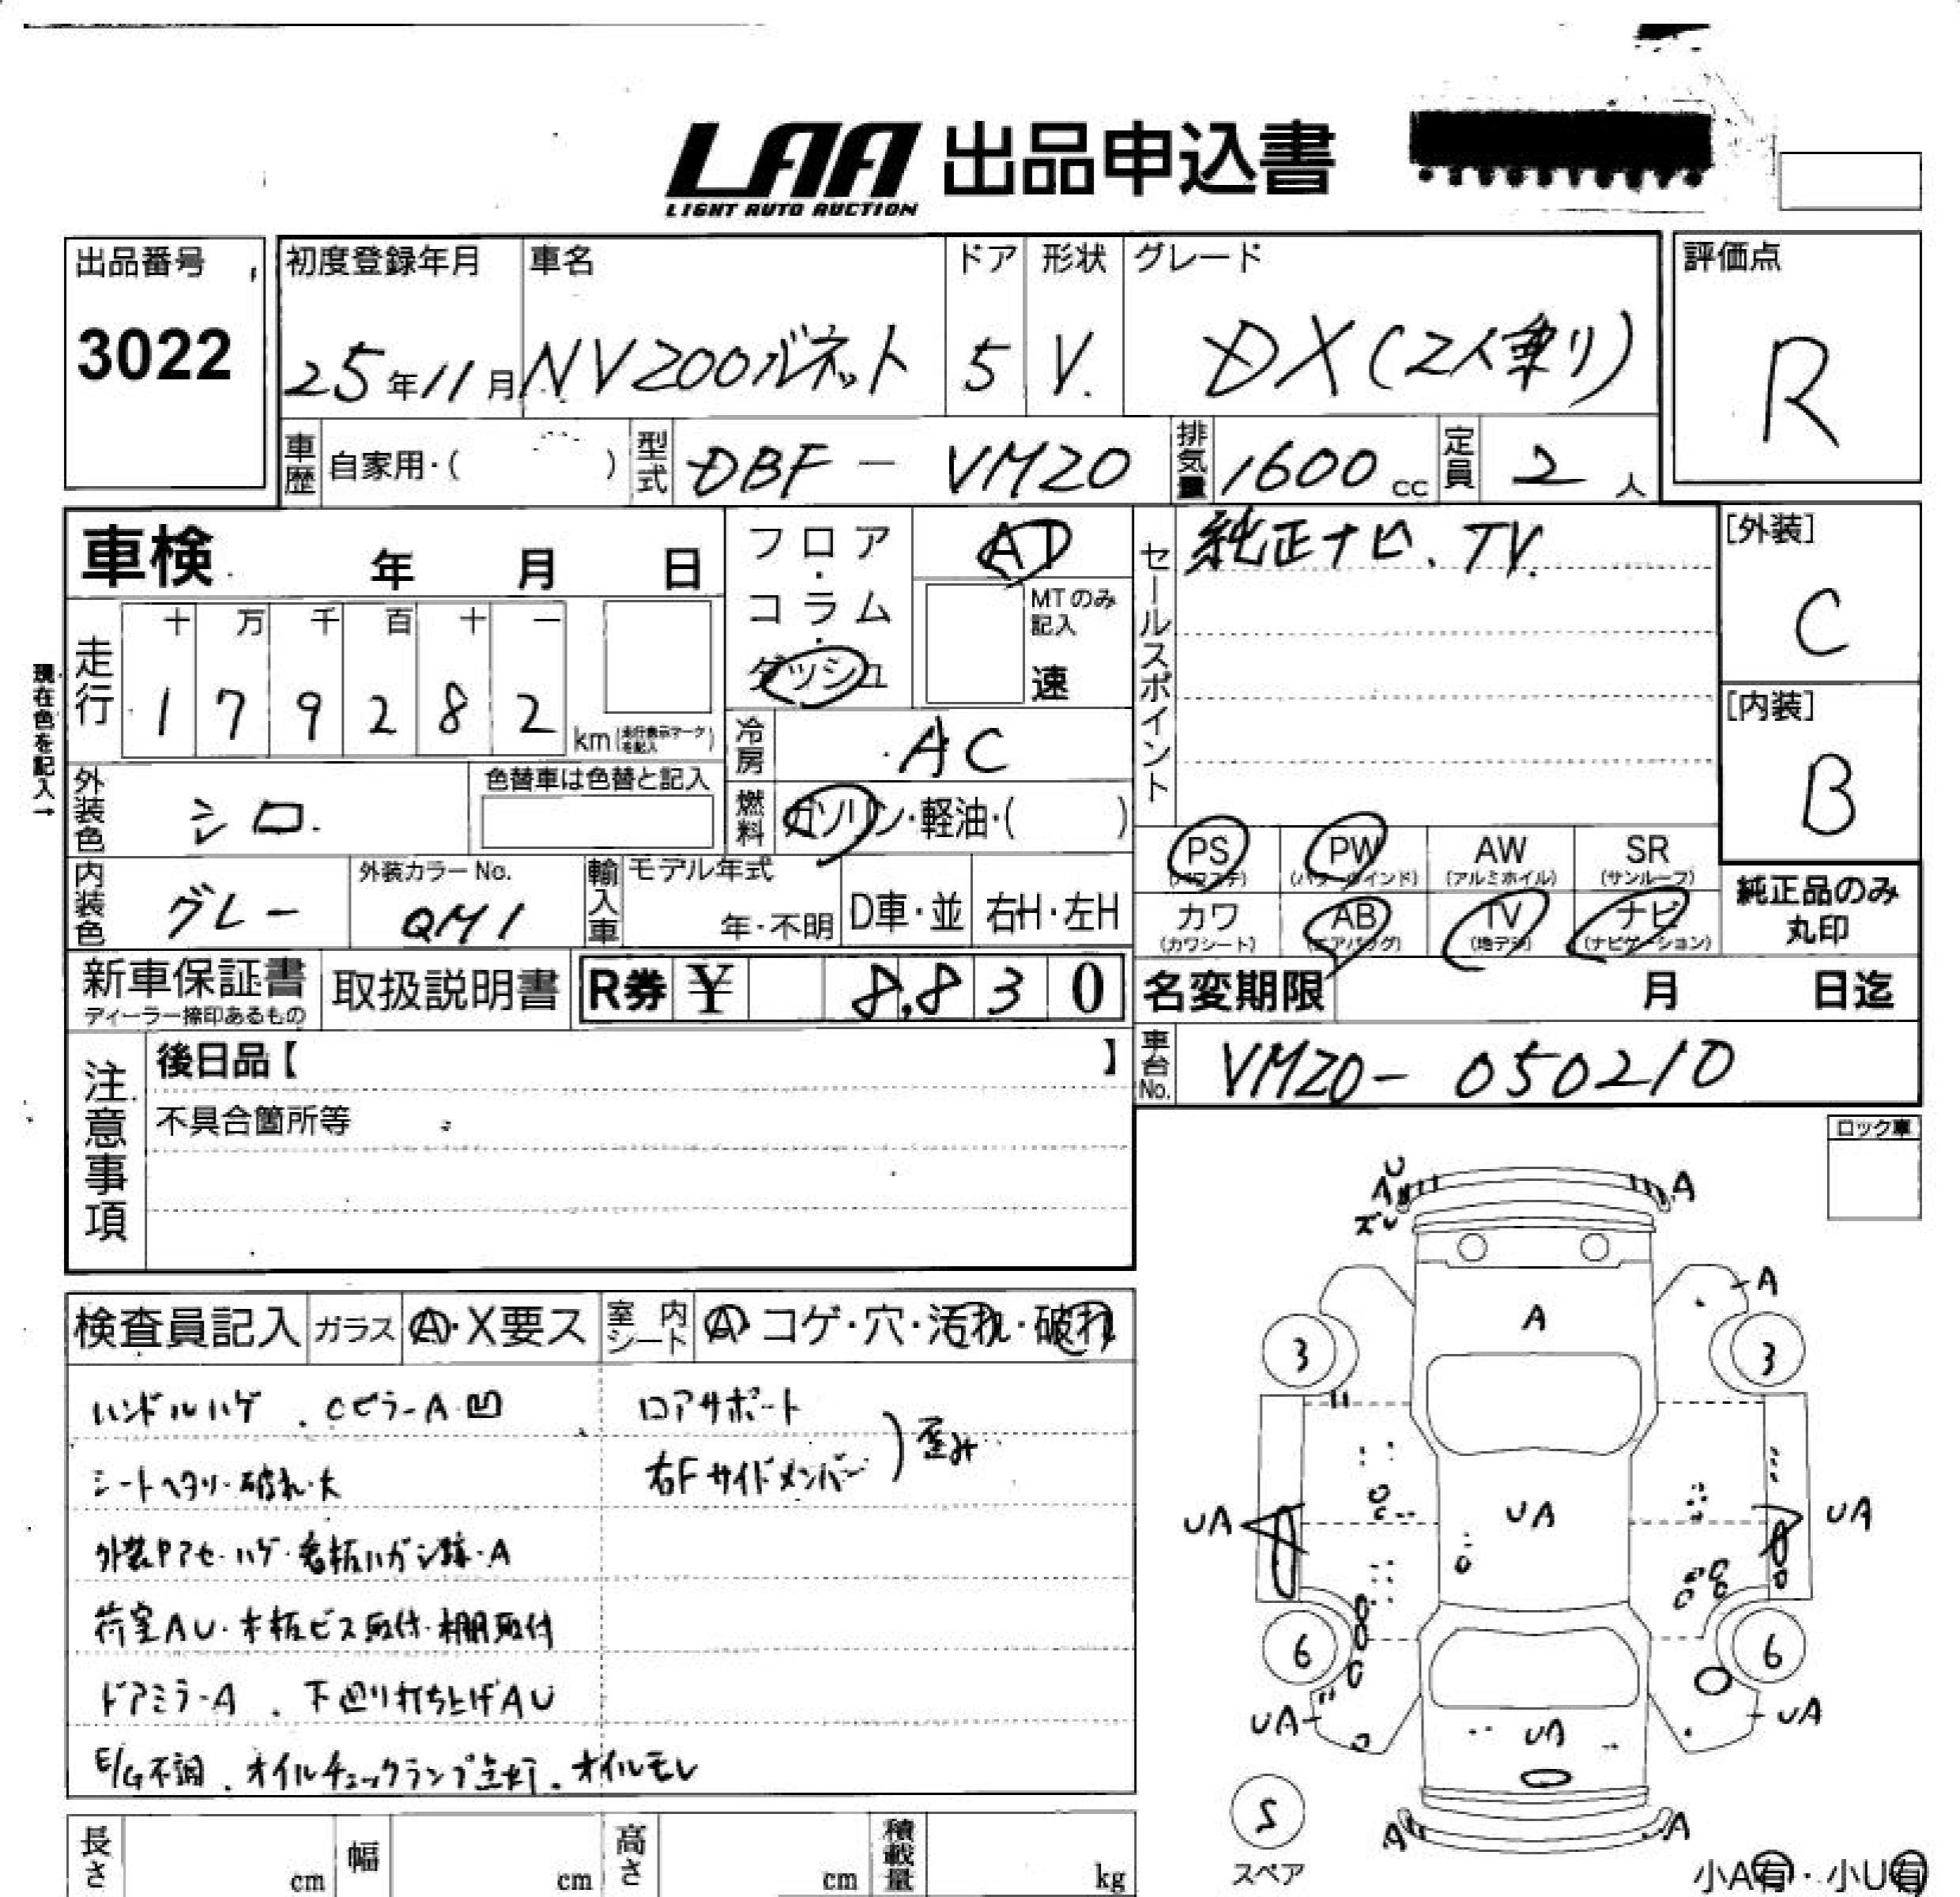 LAA 出品申込書
LIGHT AUTO AUCTION
出品番号
3022
初度登録年月
25年11月
車名
NV200バネット
ドア
5
形状
V.
グレード
DX(2人乗り)
評価点
R
車歴 自家用・( )
型式 DBF - VM20
排気量 1600 cc
定員 2 人
車検 年 月 日
フロア・コラム・ダッシュ
AT
MTのみ記入
速
セールスポイント
純正ナビ、TV.
[外装]
C
[内装]
B
現在色を記入→
走行
十 万 千 百 十 一
1 7 9 2 8 2
km(走行表示マークを記入)
冷房 AC
外装色 シロ.
色替車は色替と記入
燃料 ガソリン・軽油・( )
PS (パワステ)
PW (パワーウインド)
AW (アルミホイル)
SR (サンルーフ)
カワ (カワシート)
AB (エアバッグ)
TV (地デジ)
ナビ (ナビゲーション)
純正品のみ丸印
内装色 グレー
外装カラーNo.
QM1
輸入車
モデル年式
年・不明
D車・並
右H・左H
新車保証書
ディーラー捺印あるもの
取扱説明書
R券 ¥ 8,830
名変期限 月 日迄
車台No. VM20-050210
注意事項
後日品【 】
不具合箇所等
ロック車
検査員記入
ガラス
A・X要ス
室内シート
A・コゲ・穴・汚れ・破れ
ハンドルハゲ、CピラーA凹
シートヘタリ・破れ・大
外装Pアセ・ハゲ・看板ハガシ跡・A
荷室AU・木板ビス取付・棚取付
ドアミラーA、下廻り打ち上げAU
E/G不調、オイルチェックランプ点灯、オイルモレ
ロアサポート
右Fサイドメンバー
歪み
U
A
ズレ
A
A
A
3
3
UA
UA
UA
6
6
UA
UA
UA
A
A
S
スペア
小A有・小U有
長さ cm
幅 cm
高さ cm
積載量 kg